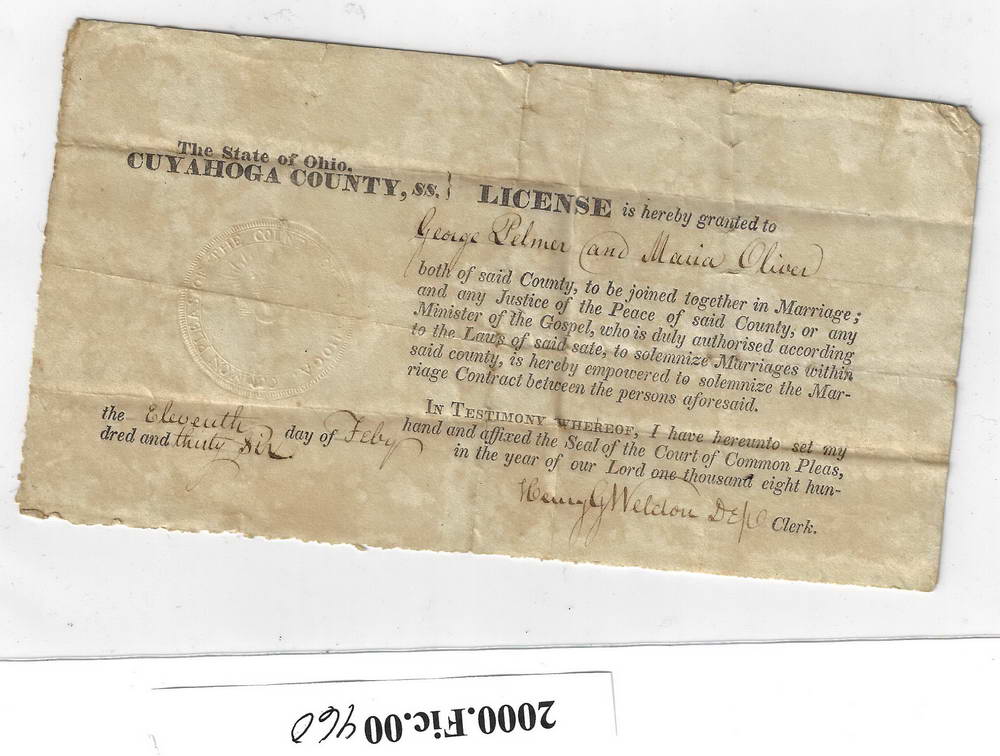 The State of Ohio,
CUYAHOGA COUNTY, ss. } LICENSE is hereby granted to
George Pelmer and Maria Oliver
both of said County, to be joined together in Marriage;
and any Justice of the Peace of said County, or any
Minister of the Gospel, who is duly authorised according
to the Laws of said sate, to solemnize Marriages within
said county, is hereby empowered to solemnize the Mar-
riage Contract between the persons aforesaid.
IN TESTIMONY WHEREOF, I have hereunto set my
hand and affixed the Seal of the Court of Common Pleas,
the Eleventh day of Feby in the year of our Lord one thousand eight hun-
dred and thirty Six
Henry G Weldon Dep Clerk.
PLEAS OF THE COUN
2000.Fic.00460